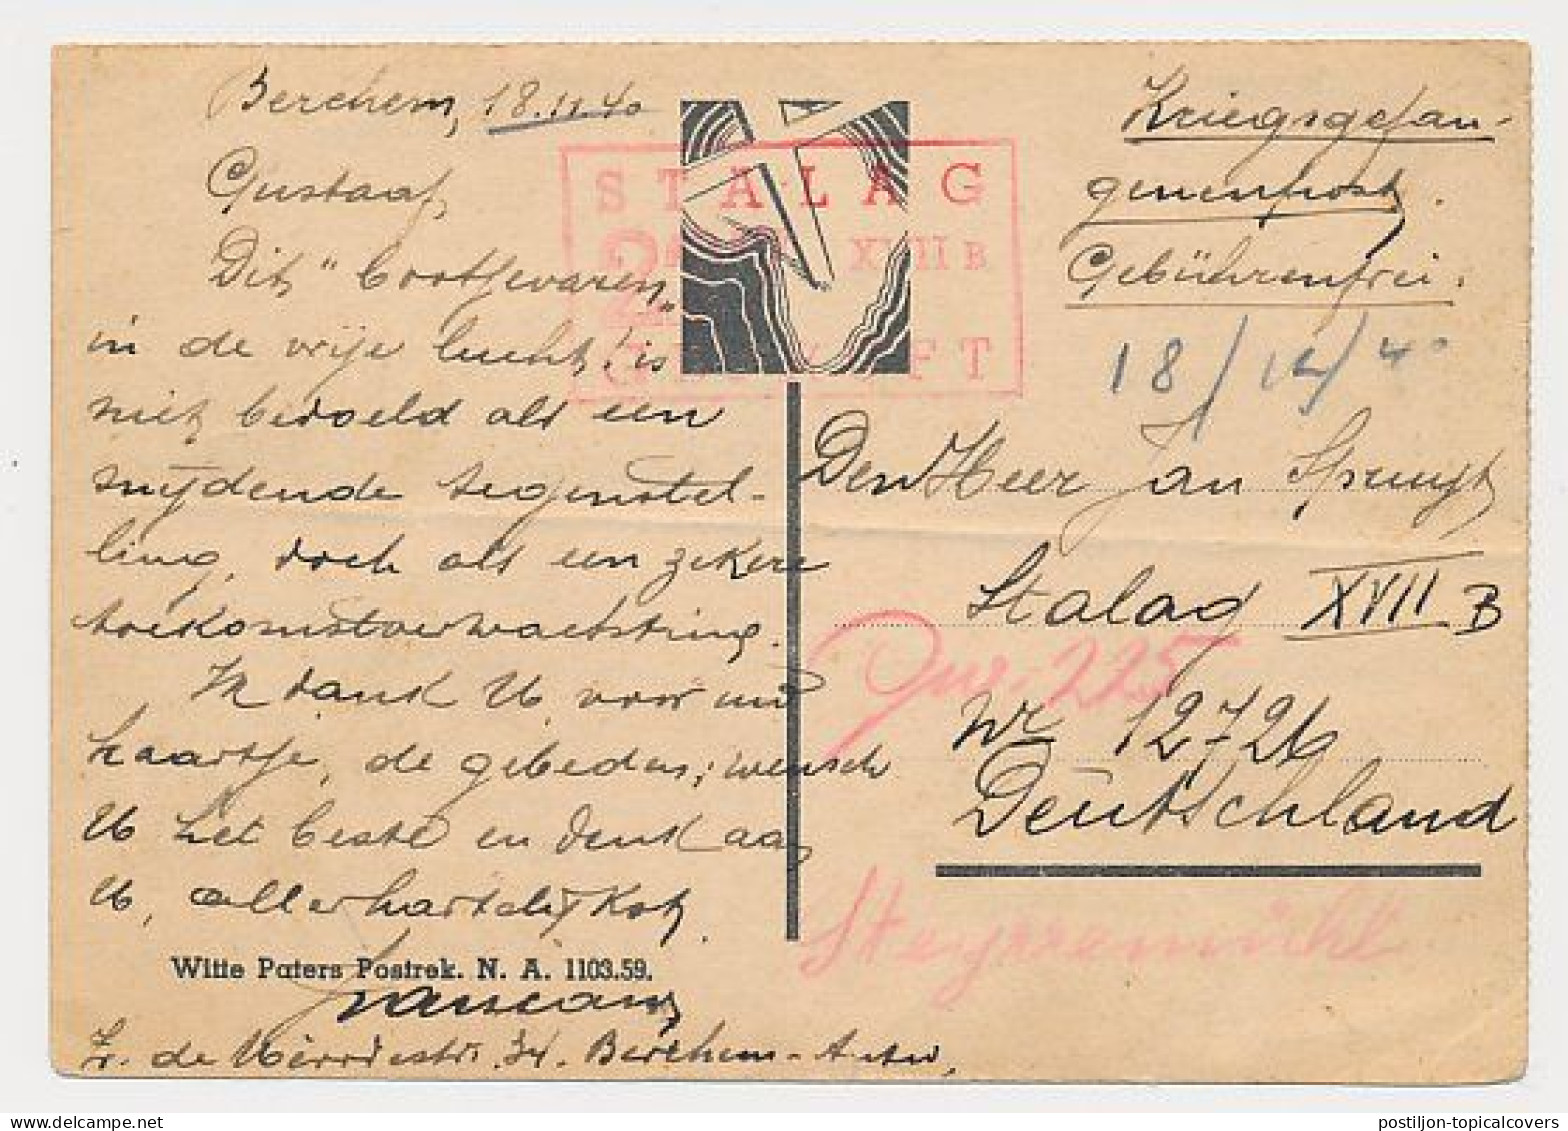 Berchem, 18.11.40
Gustaaf,
Dit "bootjevaren"
in de vrije lucht is
niet bedoeld als een
snijdende tegenstel-
ling, doch als een zekere
toekomstverwachting.
Ik dank U voor uw
kaartje, de gebeden; wensch
U het beste en denk aan
U, allerhartelijkst
Witte Paters Postrek. N. A. 1103.59.
34. Berchem-Antw.
STALAG
XVII B
Kriegsgefan-
genenpost.
Gebührenfrei.
Den Heer Jan Spruyt
Stalag XVII B
Nr 12726
Deutschland
225
postiljon-topicalcovers.com